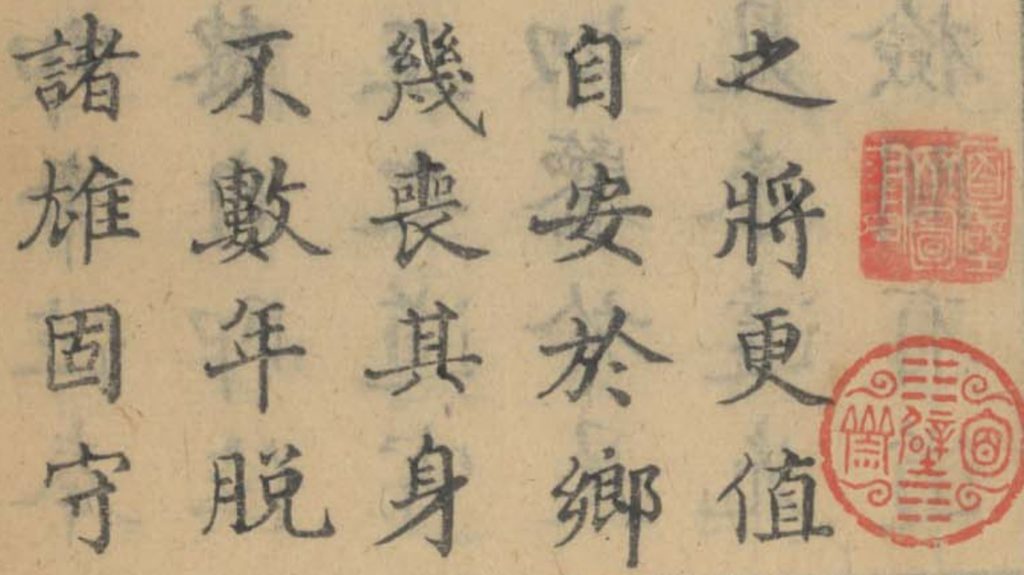 之將更值
自安於鄉
幾喪其身
不數年脱
諸雄固守